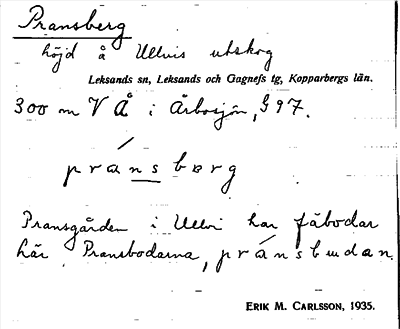 Pransberg
höjd å Ullvis utskog
Leksands sn, Leksands och Gagnefs tg, Kopparbergs län.
300 m V Å i Årbosjön, G 97.
pránsbærg
Pransgården i Ullvi har fäbodar
här Pransbodarna, pránsbudan.
ERIK M. CARLSSON, 1935.